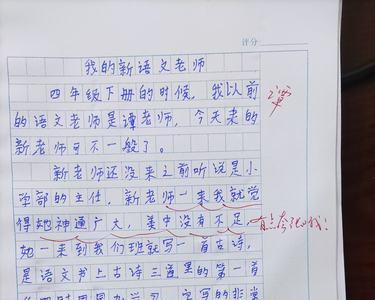 评分
我的新语文老师
四年级下册的时候，我以前
的语文老师是谭老师，今天来的
谭
新老师可不一般了。
新老师还没来之前听说是小
学部的主任，新老师一来我就觉
得她神通广大，美中没有不足，
有点夸张哦！
她一来到我们班就写一首古诗，
是语文书上古诗三首里的第一首